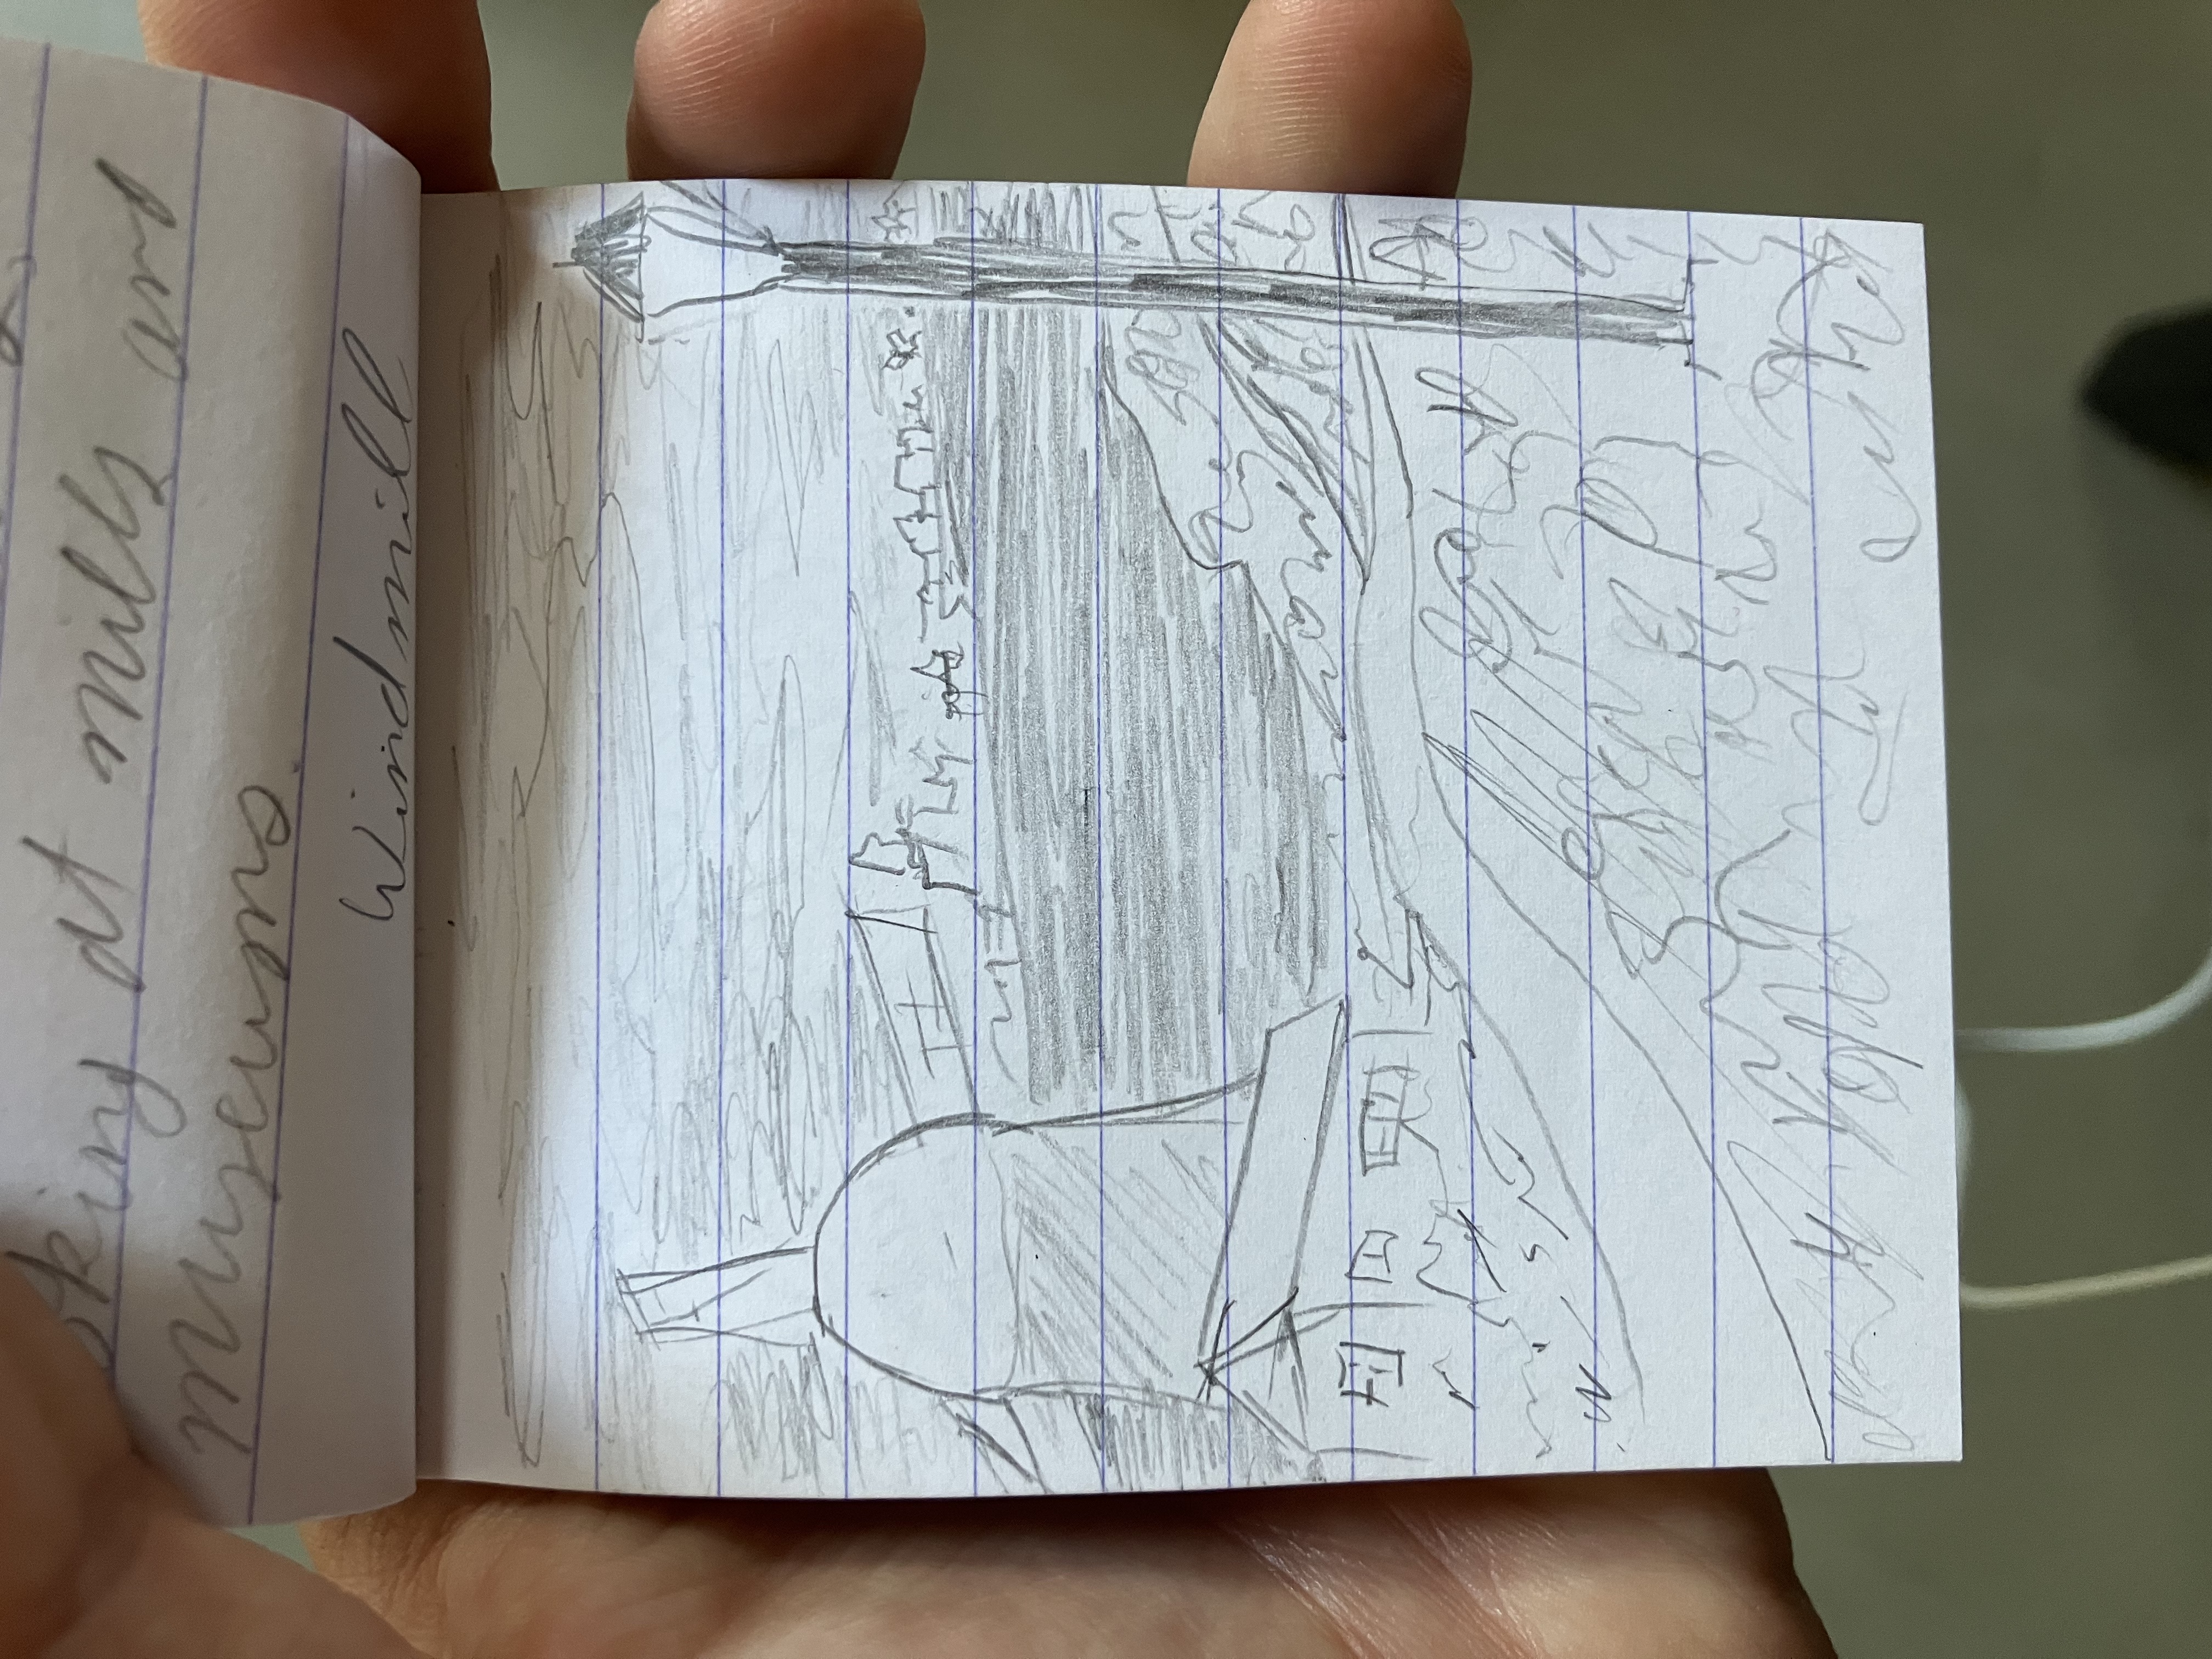 at mills and
museums.
Windmill